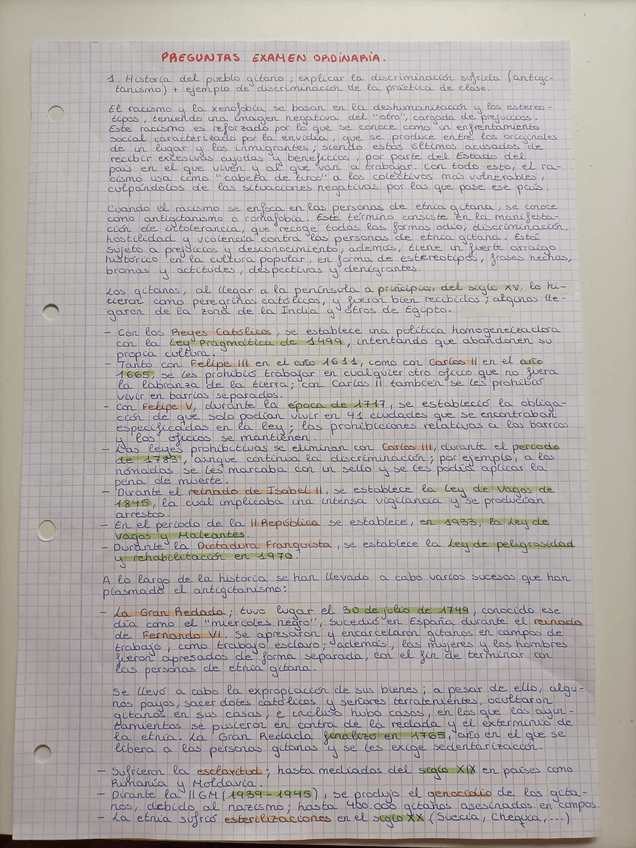 PREGUNTAS EXAMEN ORDINARIA.
1. Historia del pueblo gitano; explicar la discriminación sufrida (antigi-
tanismo) + ejemplo de discriminación de la práctica de clase.
El racismo y la xenofobia se basan en la deshumanización y los estereo-
tipos, teniendo una imagen negativa del "otro", cargada de prejuicios.
Este racismo es reforzado por lo que se conoce como un enfrentamiento
social caracterizado por la envidia, que se produce entre los originales
de un lugar y los inmigrantes; siendo estos últimos acusados de
recibir excesivas ayudas y beneficios, por parte del Estado del
país en el que viven y al que van a trabajar. Con todo esto, el ra-
cismo usa como "cabeza de turco" a los colectivos más vulnerables,
culpándolos de las situaciones negativas por las que pase ese país.
Cuando el racismo se enfoca en las personas de etnia gitana, se conoce
como antigitanismo o romafobia. Este término consiste en la manifesta-
ción de intolerancia, que recoge todas las formas odio, discriminación,
hostilidad y violencia contra las personas de etnia gitana. Está
sujeto a prejuicios y desconocimiento; además, tiene un fuerte arraigo
histórico en la cultura popular, en forma de estereotipos, frases hechas,
bromas y actitudes, despectivas y denigrantes.
Los gitanos, al llegar a la península a principios del siglo XV, lo hi-
cieron como peregrinos católicos, y fueron bien recibidos; algunos lle-
garon de la zona de la India y otros de Egipto.
- Con los Reyes Católicos, se establece una política homogeneizadora
con la Ley Pragmática de 1499, intentando que abandonen su
propia cultura.
- Tanto con Felipe III en el año 1611, como con Carlos II en el año
1665, se les prohibió trabajar en cualquier otro oficio que no fuera
la labranza de la tierra; con Carlos II también se les prohibió
vivir en barrios separados.
- Con Felipe V, durante la época de 1717, se estableció la obliga-
ción de que solo podían vivir en 41 ciudades que se encontraban
especificadas en la ley; las prohibiciones relativas a los barrios
y los oficios se mantienen.
- Las leyes prohibitivas se eliminan con Carlos III, durante el periodo
de 1783, aunque continua la discriminación; por ejemplo, a los
nómadas se les marcaba con un sello y se les podía aplicar la
pena de muerte.
- Durante el reinado de Isabel II, se establece la Ley de Vagos de
1845, la cual implicaba una intensa vigilancia y se producían
arrestos.
- En el periodo de la II República se establece, en 1933, la Ley de
Vagos y Maleantes.
- Durante la Dictadura Franquista, se establece la Ley de peligrosidad
y rehabilitación en 1970.
A lo largo de la historia se han llevado a cabo varios sucesos que han
plasmado el antigitanismo:
- La Gran Redada; tuvo lugar el 30 de julio de 1749, conocido ese
día como el "miércoles negro", sucedió en España durante el reinado
de Fernando VI. Se apresaron y encarcelaron gitanos en campos de
trabajo, como trabajo esclavo; además, las mujeres y los hombres
fueron apresados de forma separada, con el fin de terminar con
las personas de etnia gitana.
Se llevó a cabo la expropiación de sus bienes; a pesar de ello, algu-
nos payos, sacerdotes católicos y señores terratenientes, ocultaron
gitanos en sus casas, e incluso hubo casos, en los que los ayun-
tamientos se pusieron en contra de la redada y el exterminio de
la etnia. La Gran Redada finalizó en 1765, año en el que se
libera a las personas gitanas y se les exige sedentarización.
- Sufrieron la esclavitud; hasta mediados del siglo XIX en países como
Rumanía y Moldavia.
- Durante la II GM (1939-1945), se produjo el genocidio de los gita-
nos, debido al nazismo; hasta 400.000 gitanos asesinados en campos.
- La etnia sufrió esterilizaciones en el siglo XX (Suecia, Chequia, ...)